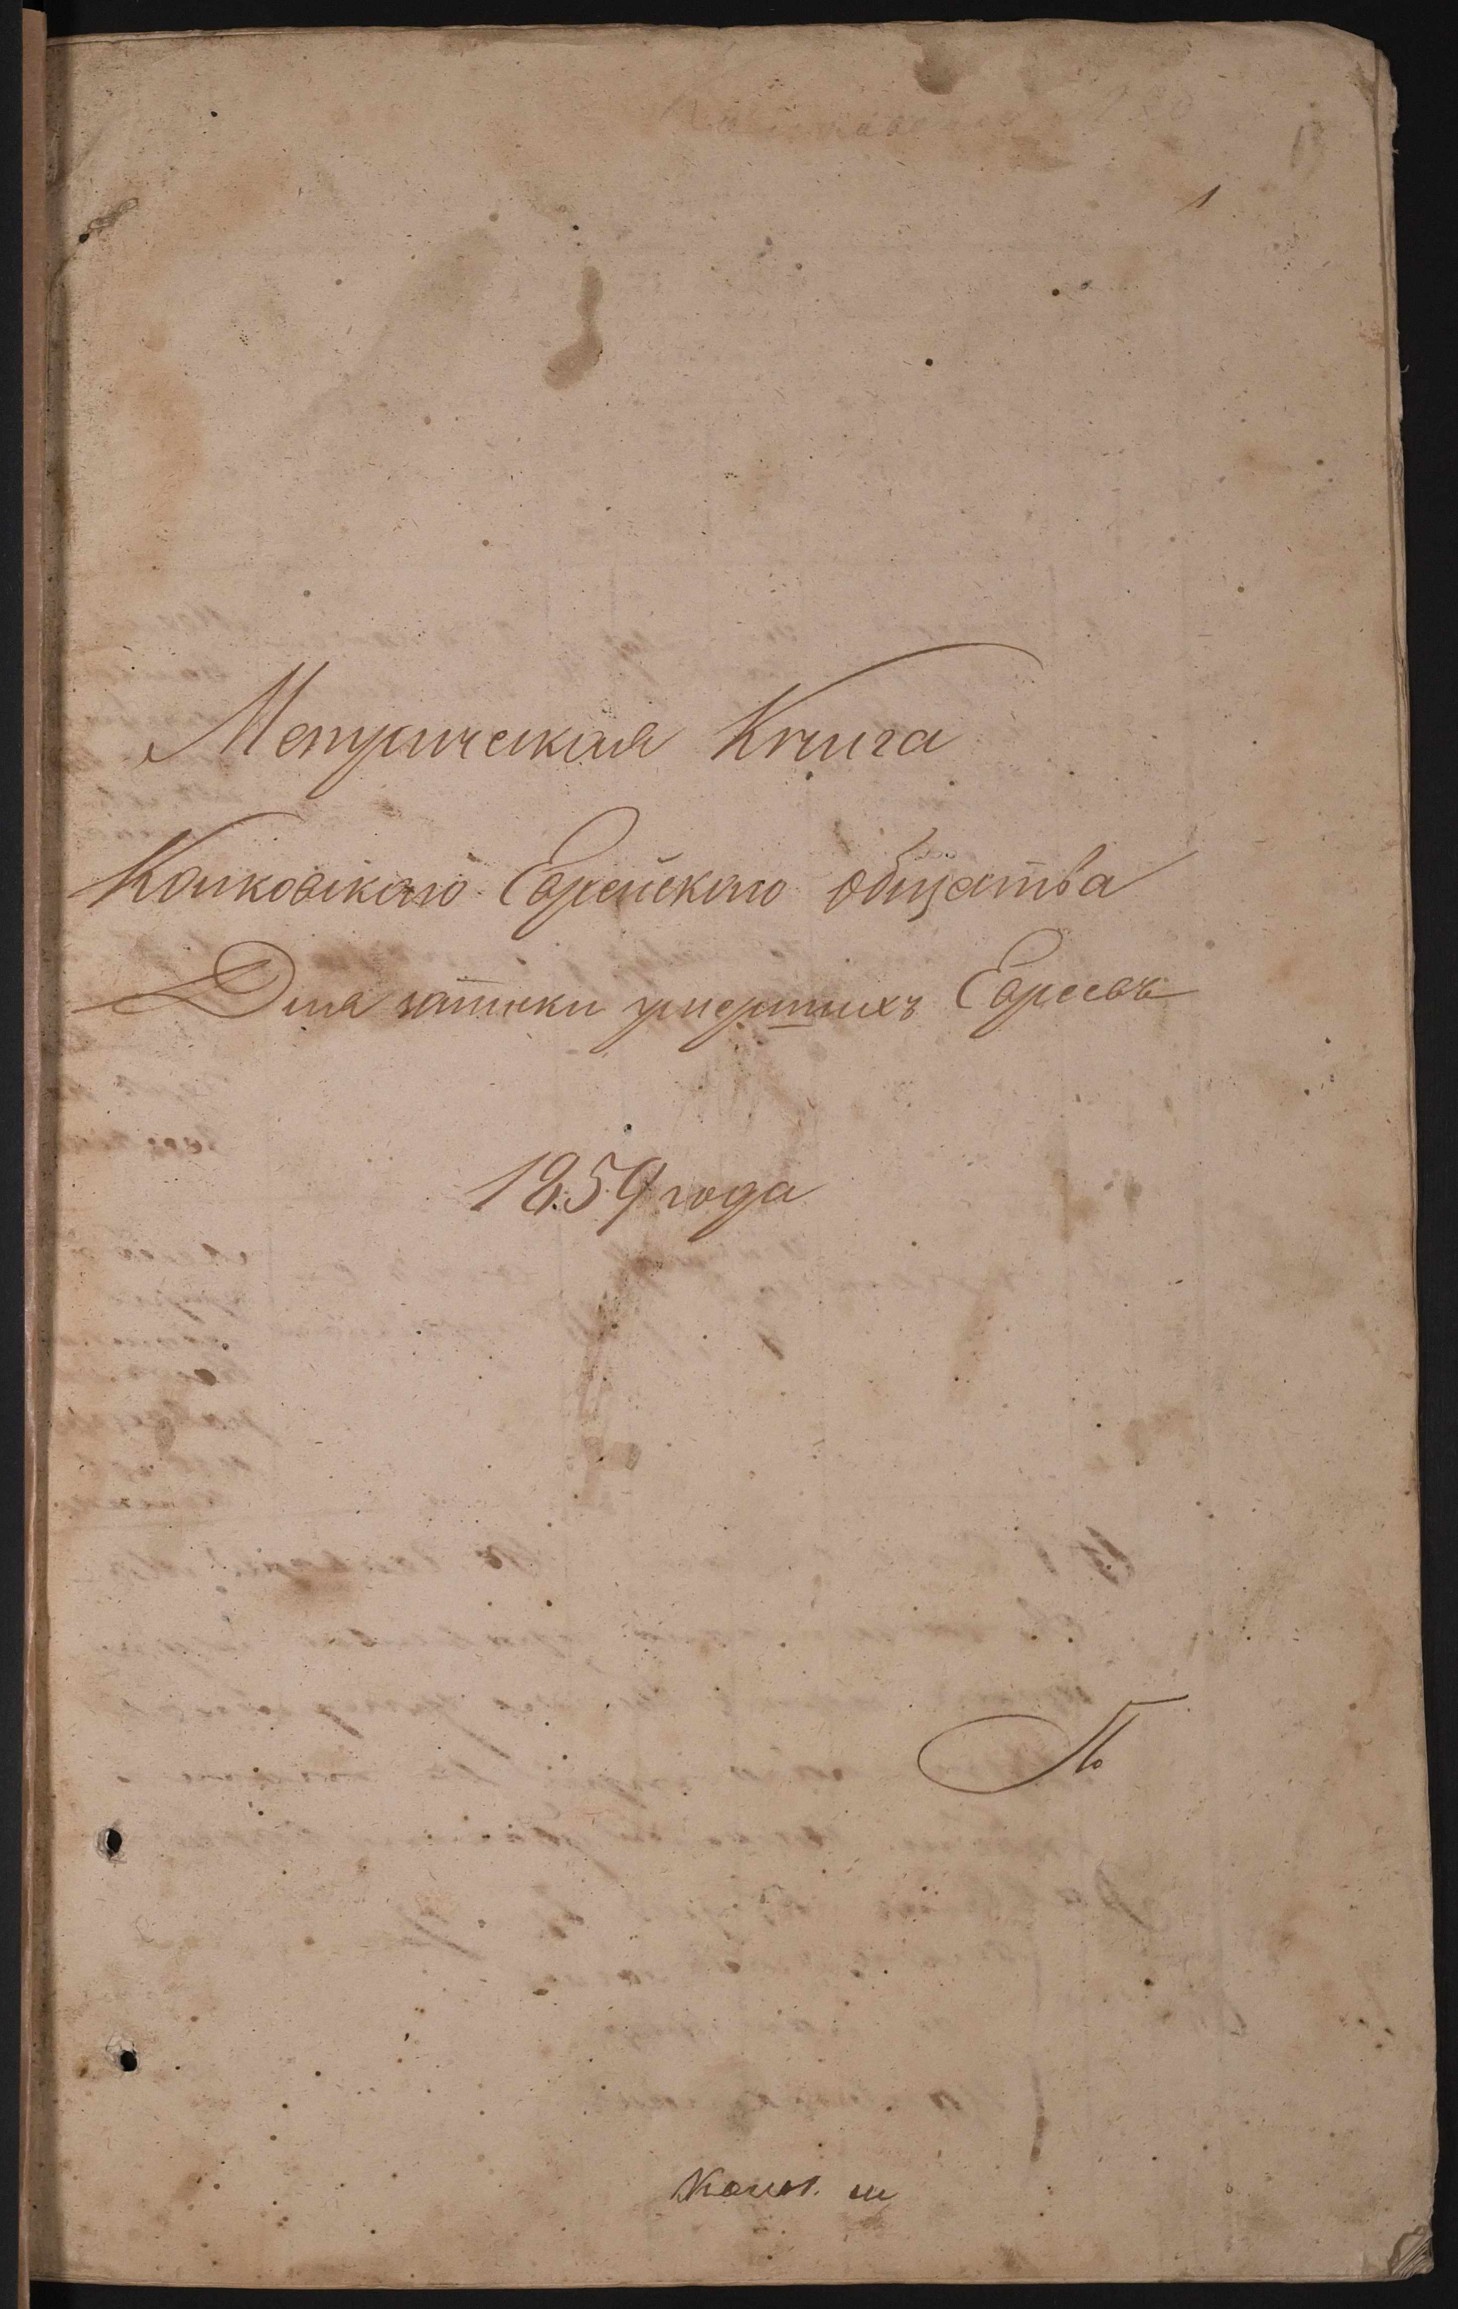 1
Метрическая Книга
Колковскаго Еврейскаго общества
Для записки умершихъ Евреевъ
1859 года
По